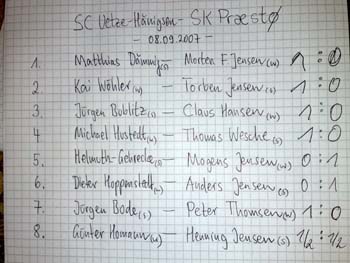 SC Uetze-Hänigsen - SK Præstø
- 08.09.2007 -
1. Matthias Dämmig(s) — Morten F Jensen(w) 1 : 0
2. Kai Wöhler(w) — Torben Jensen(s) 1 : 0
3. Jürgen Bublitz(s) — Claus Hansen(w) 1 : 0
4 Michael Hustedt(w) — Thomas Wesche(s) 1 : 0
5. Helmuth Gehrecke(s) — Mogens Jensen(w) 0 : 1
6. Dieter Hoppenstedt(w) — Anders Jensen(s) 0 : 1
7. Jürgen Bode(s) — Peter Thomsen(w) 1 : 0
8. Günter Homann(w) — Henning Jensen(s) 1/2 : 1/2